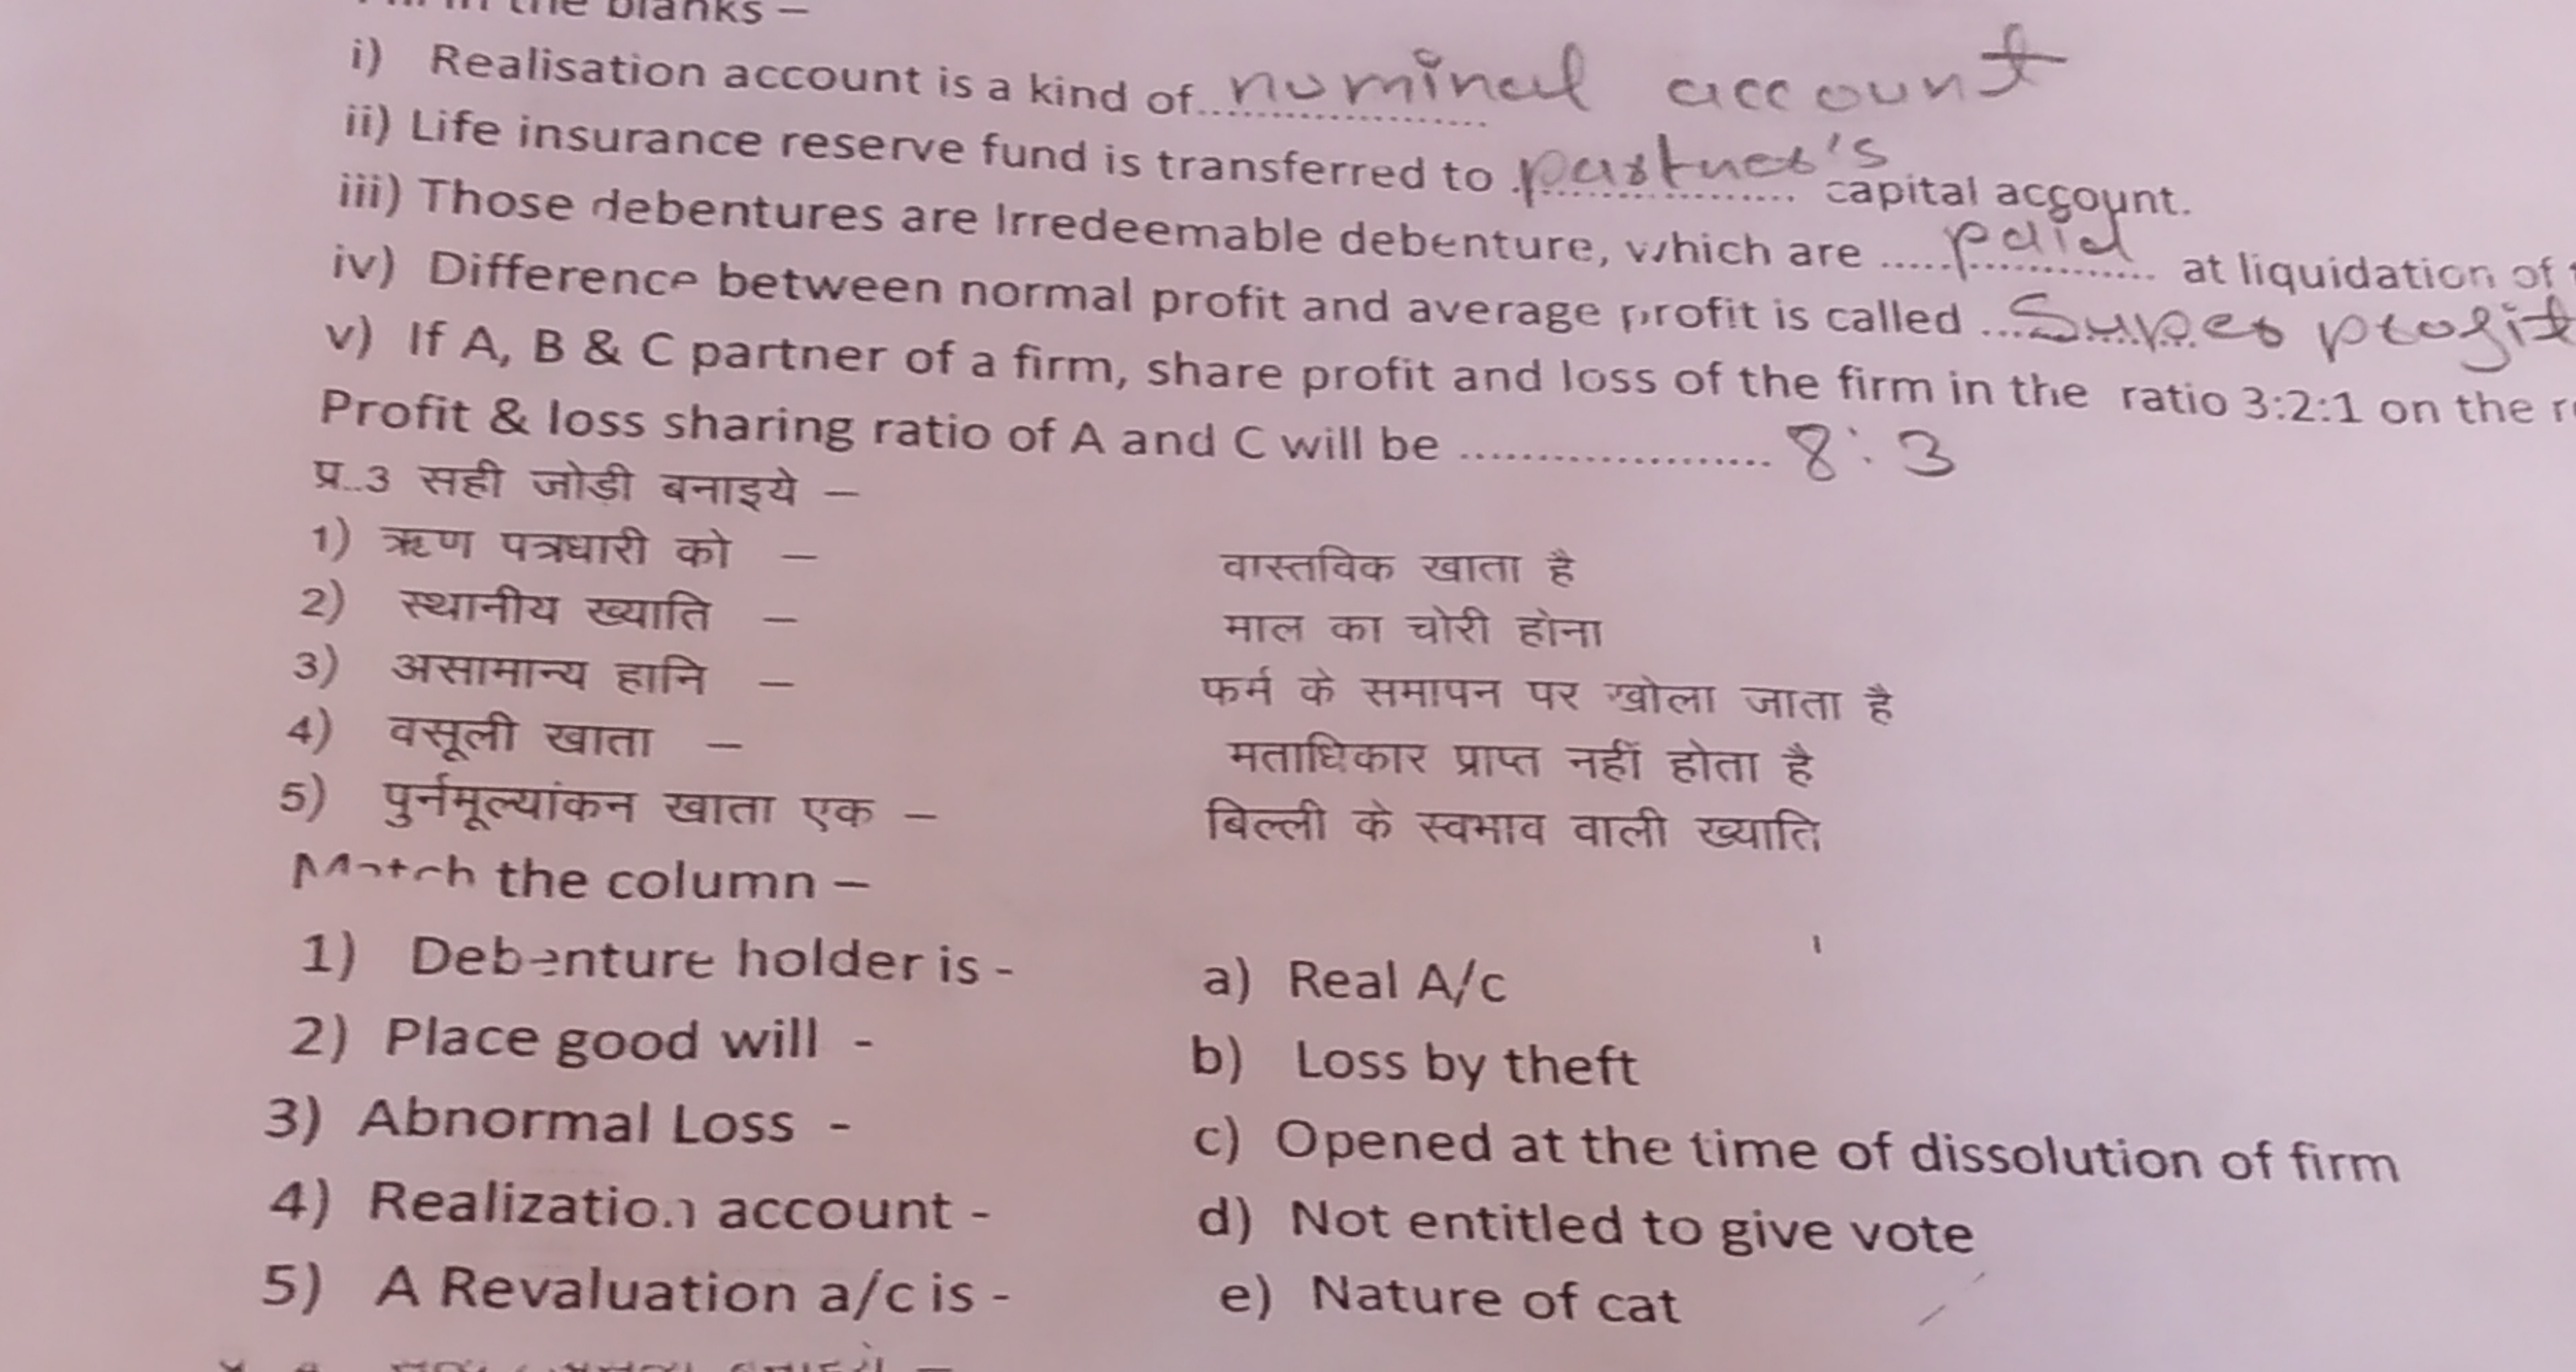 the blanks –
i) Realisation account is a kind of.................... nominal account
ii) Life insurance reserve fund is transferred to .................... partner's capital account.
iii) Those debentures are Irredeemable debenture, which are .................... paid at liquidation of
iv) Difference between normal profit and average profit is called .................... Super profit
v) If A, B & C partner of a firm, share profit and loss of the firm in the ratio 3:2:1 on the
Profit & loss sharing ratio of A and C will be .................... 8:3
प्र..3 सही जोड़ी बनाइये –
1) ऋण पत्रधारी को – वास्तविक खाता है
2) स्थानीय ख्याति – माल का चोरी होना
3) असामान्य हानि – फर्म के समापन पर खोला जाता है
4) वसूली खाता – मताधिकार प्राप्त नहीं होता है
5) पुर्नमूल्यांकन खाता एक – बिल्ली के स्वभाव वाली ख्याति
Match the column –
1) Debenture holder is - a) Real A/c
2) Place good will - b) Loss by theft
3) Abnormal Loss - c) Opened at the time of dissolution of firm
4) Realization account - d) Not entitled to give vote
5) A Revaluation a/c is - e) Nature of cat